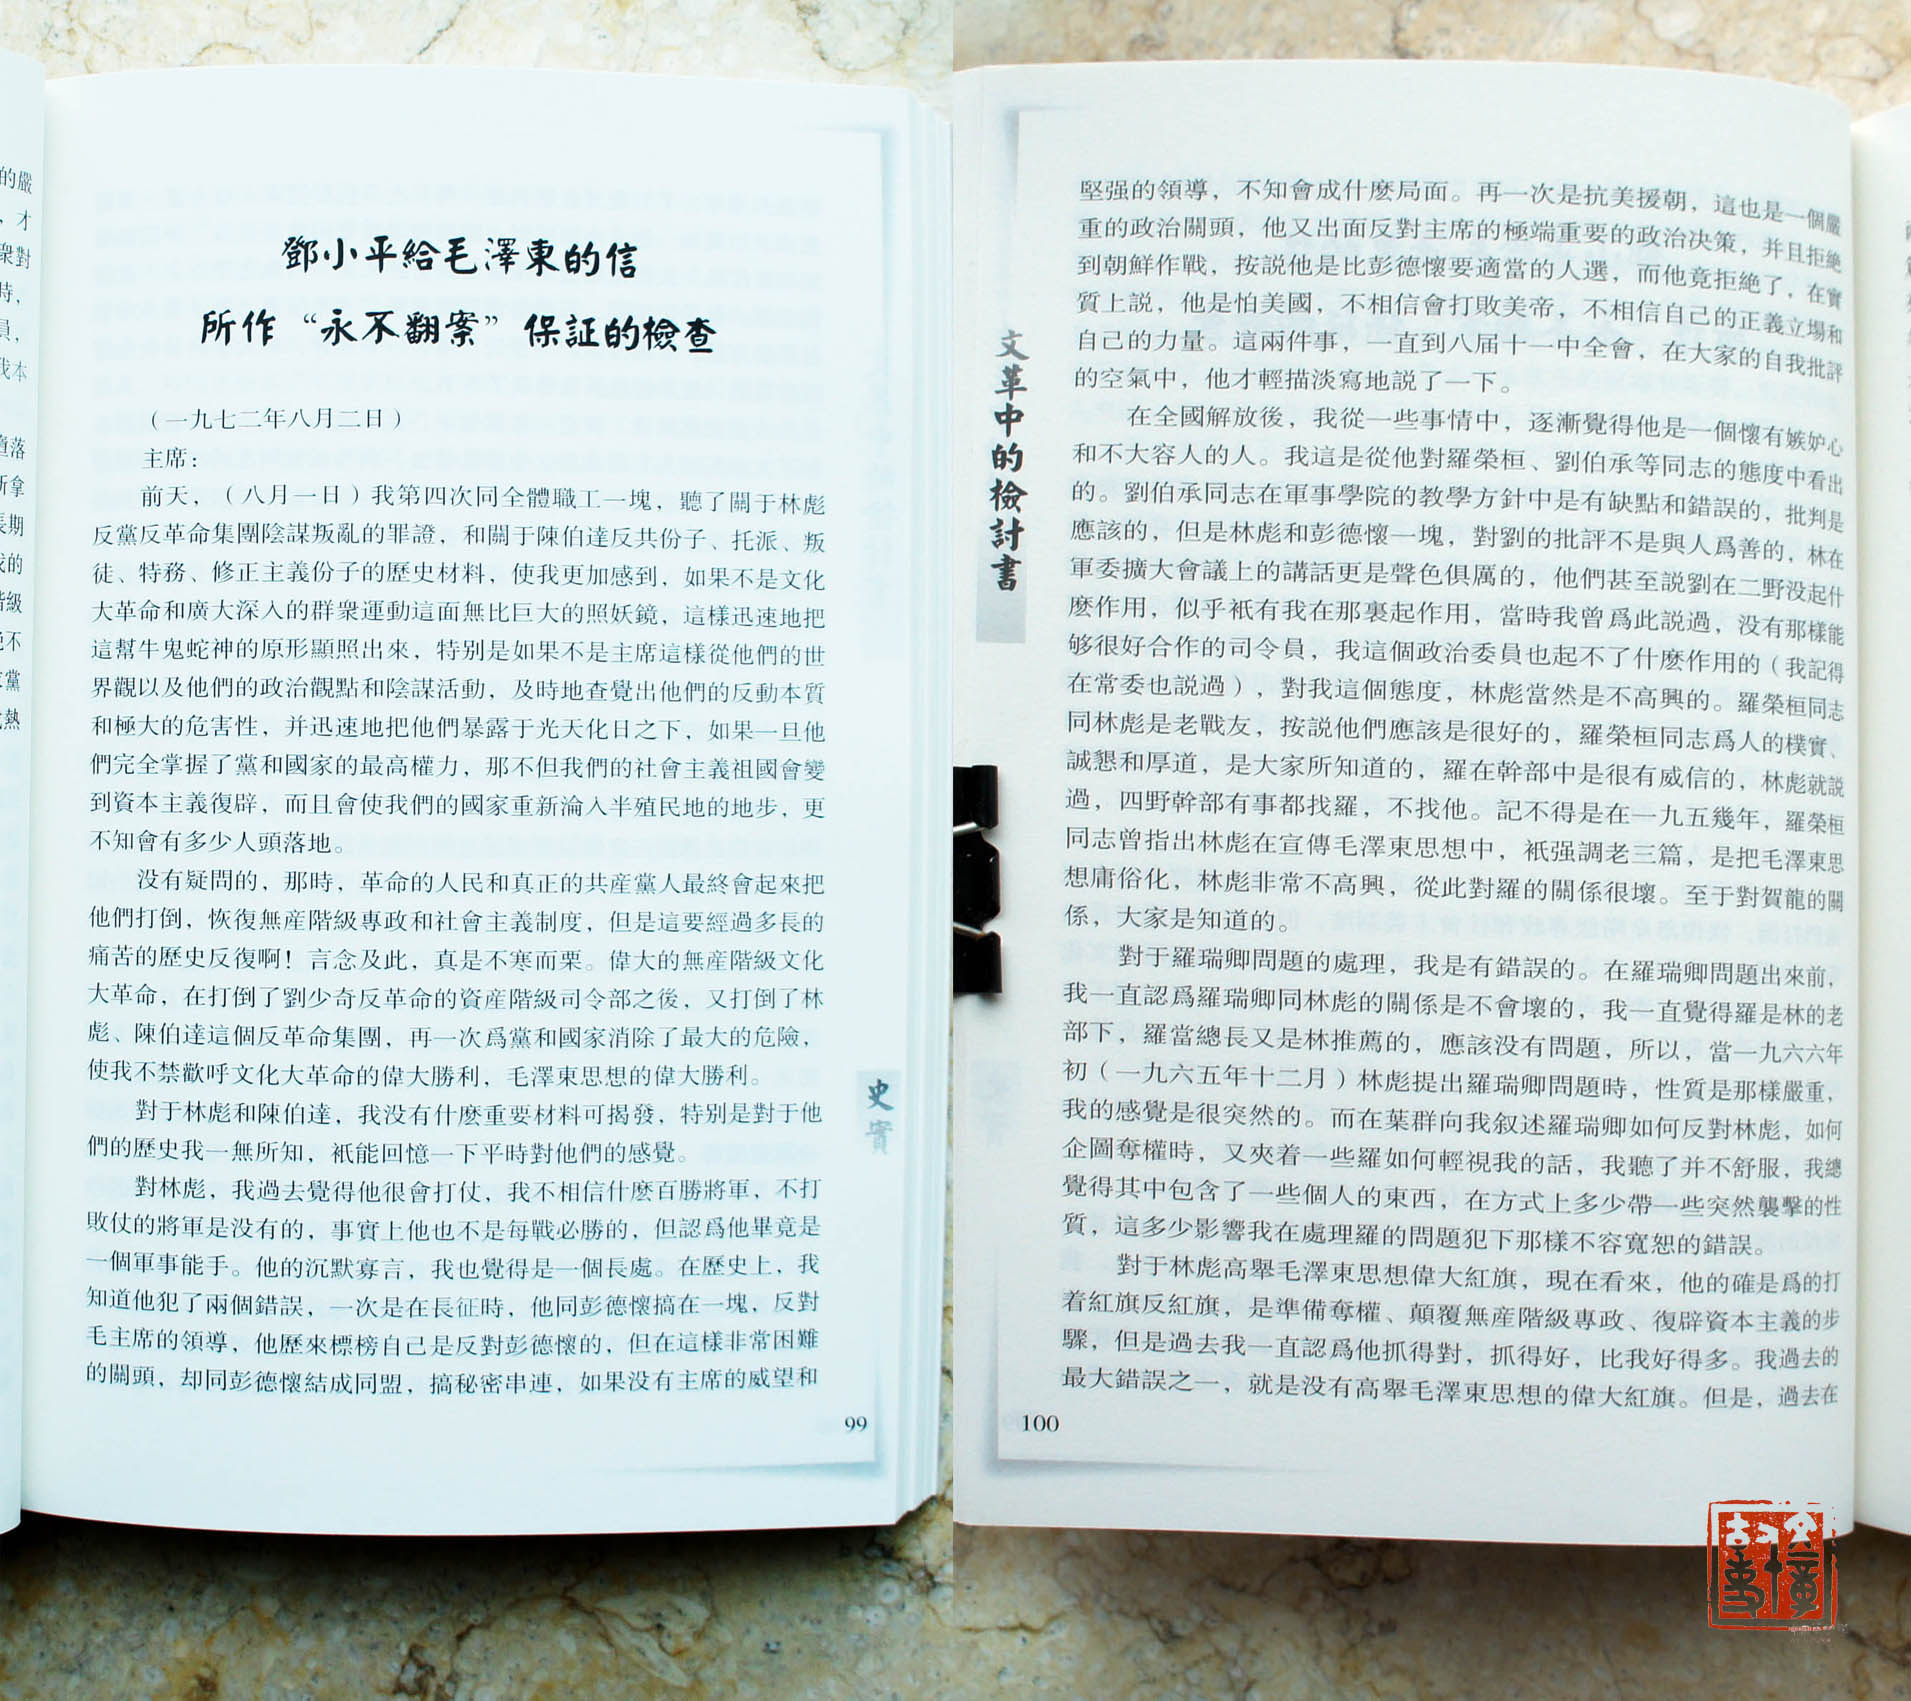 的嚴
，才
衆對
時，
員，
我本
墮落
所拿
長期
我的
階級
絶不
黨
熱
鄧小平給毛澤東的信
所作“永不翻案”保証的檢查
（一九七二年八月二日）
主席：
前天，（八月一日）我第四次同全體職工一塊，聽了關于林彪
反黨反革命集團陰謀叛亂的罪證，和關于陳伯達反共份子、托派、叛
徒、特務、修正主義份子的歷史材料，使我更加感到，如果不是文化
大革命和廣大深入的群衆運動這面無比巨大的照妖鏡，這樣迅速地把
這幫牛鬼蛇神的原形顯照出來，特别是如果不是主席這樣從他們的世
界觀以及他們的政治觀點和陰謀活動，及時地查覺出他們的反動本質
和極大的危害性，并迅速地把他們暴露于光天化日之下，如果一旦他
們完全掌握了黨和國家的最高權力，那不但我們的社會主義祖國會變
到資本主義復辟，而且會使我們的國家重新淪入半殖民地的地步，更
不知會有多少人頭落地。
没有疑問的，那時，革命的人民和真正的共産黨人最終會起來把
他們打倒，恢復無産階級專政和社會主義制度，但是這要經過多長的
痛苦的歷史反復啊！言念及此，真是不寒而栗。偉大的無産階級文化
大革命，在打倒了劉少奇反革命的資産階級司令部之後，又打倒了林
彪、陳伯達這個反革命集團，再一次爲黨和國家消除了最大的危險，
使我不禁歡呼文化大革命的偉大勝利，毛澤東思想的偉大勝利。
對于林彪和陳伯達，我没有什麽重要材料可揭發，特别是對于他
們的歷史我一無所知，衹能回憶一下平時對他們的感覺。
對林彪，我過去覺得他很會打仗，我不相信什麽百勝將軍，不打
敗仗的將軍是没有的，事實上他也不是每戰必勝的，但認爲他畢竟是
一個軍事能手。他的沉默寡言，我也覺得是一個長處。在歷史上，我
知道他犯了兩個錯誤，一次是在長征時，他同彭德懷搞在一塊，反對
毛主席的領導，他歷來標榜自己是反對彭德懷的，但在這樣非常困難
的關頭，却同彭德懷結成同盟，搞秘密串連，如果没有主席的威望和
史實
99
文革中的檢討書
堅强的領導，不知會成什麽局面。再一次是抗美援朝，這也是一個嚴
重的政治關頭，他又出面反對主席的極端重要的政治决策，并且拒絶
到朝鮮作戰，按説他是比彭德懷要適當的人選，而他竟拒絶了，在實
質上説，他是怕美國，不相信會打敗美帝，不相信自己的正義立場和
自己的力量。這兩件事，一直到八届十一中全會，在大家的自我批評
的空氣中，他才輕描淡寫地説了一下。
在全國解放後，我從一些事情中，逐漸覺得他是一個懷有嫉妒心
和不大容人的人。我這是從他對羅榮桓、劉伯承等同志的態度中看出
的。劉伯承同志在軍事學院的教學方針中是有缺點和錯誤的，批判是
應該的，但是林彪和彭德懷一塊，對劉的批評不是與人爲善的，林在
軍委擴大會議上的講話更是聲色俱厲的，他們甚至説劉在二野没起什
麽作用，似乎衹有我在那裏起作用，當時我曾爲此説過，没有那樣能
够很好合作的司令員，我這個政治委員也起不了什麽作用的（我記得
在常委也説過），對我這個態度，林彪當然是不高興的。羅榮桓同志
同林彪是老戰友，按説他們應該是很好的，羅榮桓同志爲人的樸實、
誠懇和厚道，是大家所知道的，羅在幹部中是很有威信的，林彪就説
過，四野幹部有事都找羅，不找他。記不得是在一九五幾年，羅榮桓
同志曾指出林彪在宣傳毛澤東思想中，衹强調老三篇，是把毛澤東思
想庸俗化，林彪非常不高興，從此對羅的關係很壞。至于對賀龍的關
係，大家是知道的。
對于羅瑞卿問題的處理，我是有錯誤的。在羅瑞卿問題出來前，
我一直認爲羅瑞卿同林彪的關係是不會壞的，我一直覺得羅是林的老
部下，羅當總長又是林推薦的，應該没有問題，所以，當一九六六年
初（一九六五年十二月）林彪提出羅瑞卿問題時，性質是那樣嚴重，
我的感覺是很突然的。而在葉群向我叙述羅瑞卿如何反對林彪，如何
企圖奪權時，又夾着一些羅如何輕視我的話，我聽了并不舒服，我總
覺得其中包含了一些個人的東西，在方式上多少帶一些突然襲擊的性
質，這多少影響我在處理羅的問題犯下那樣不容寬恕的錯誤。
對于林彪高舉毛澤東思想偉大紅旗，現在看來，他的確是爲的打
着紅旗反紅旗，是準備奪權、顛覆無産階級專政、復辟資本主義的步
驟，但是過去我一直認爲他抓得對，抓得好，比我好得多。我過去的
最大錯誤之一，就是没有高舉毛澤東思想的偉大紅旗。但是，過去在
100